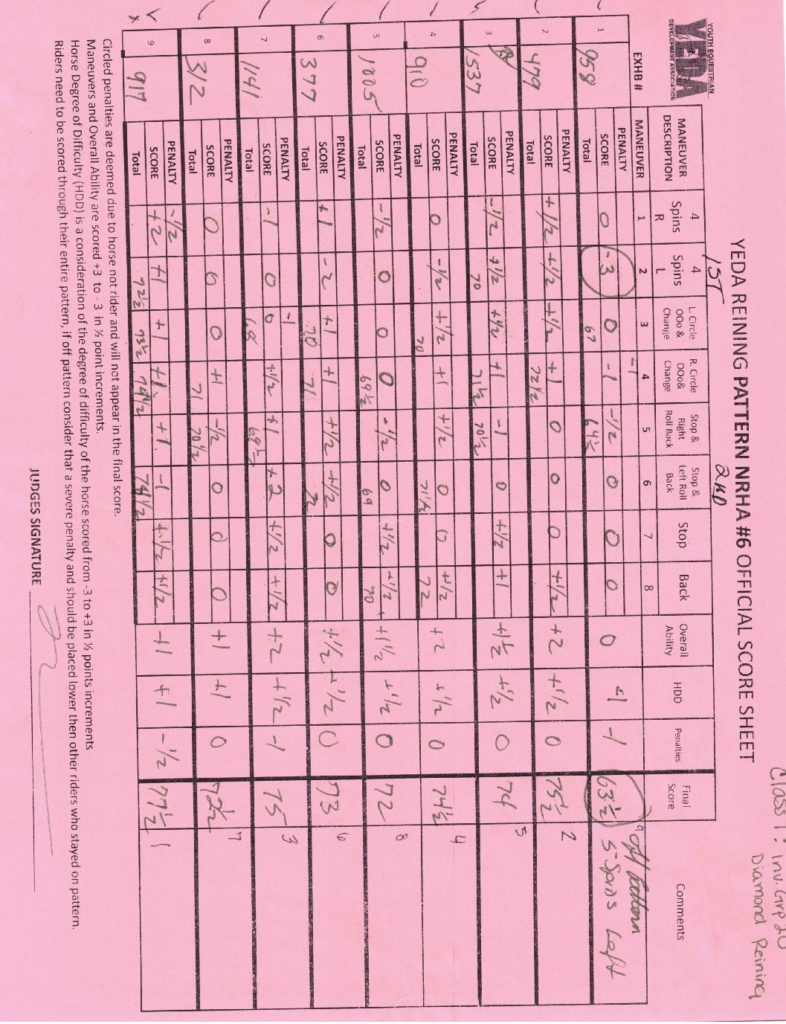 Class 1: Inv. Grp 20
Diamond Reining
YOUTH EQUESTRIAN
YEDA
DEVELOPMENT ASSOCIATION
YEDA REINING PATTERN NRHA #6 OFFICIAL SCORE SHEET
1ST 2ND
MANEUVER DESCRIPTION 4 Spins R 4 Spins L L. Circle OOo & Change R. Circle OOo& Change Stop & Right Roll Back Stop & Left Roll Back Stop Back Overall Ability HDD Penalties Final Score Comments
EXHB # MANEUVER 1 2 3 4 5 6 7 8
1 958
PENALTY -1
SCORE 0 -3 0 -1 -1/2 0 0 0 0 +1 -1 63½ 9 off Pattern 5 Spins Left
Total 67 64½
2 479
PENALTY
SCORE +1/2 +1/2 +1/2 +1 0 0 0 +1/2 +2 +1/2 0 75½ 2
Total 72½
3 1537
PENALTY
SCORE -1/2 +1/2 +1/2 +1 -1 0 +1/2 +1 +1½ +½ 0 74 5
Total 70 71½ 70½
4 910
PENALTY
SCORE 0 -1/2 +1/2 +1 +1/2 0 0 +1/2 +2 +1/2 0 74½ 4
Total 70 71½ 72
5 1005
PENALTY
SCORE -1/2 0 0 0 -1/2 0 +1/2 +1/2 +1½ +½ 0 72 8
Total 69½ 69 70
6 377
PENALTY
SCORE +1 -2 +1 +1 +1/2 +1/2 0 0 +1/2 +1/2 0 73 6
Total 70 71 72
7 1141
PENALTY -1
SCORE -1 0 0 +1/2 +1 +2 +1/2 +1/2 +2 +1/2 -1 75 3
Total 68 69½
8 312
PENALTY
SCORE 0 0 0 +1 -1/2 0 0 0 +1 +1 0 72½ 7
Total 71 70½
9 917
PENALTY -1/2
SCORE +2 +1 +1 +1 +1 -1 +1/2 +1/2 +1 +1 -1/2 77½ 1
Total 72½ 73½ 74½ 74½
Circled penalties are deemed due to horse not rider and will not appear in the final score.
Maneuvers and Overall Ability are scored +3 to - 3 in ½ point increments.
Horse Degree of Difficulty (HDD) is a consideration of the degree of difficulty of the horse scored from -3 to +3 in ½ points increments
Riders need to be scored through their entire pattern, if off pattern consider that a severe penalty and should be placed lower then other riders who stayed on pattern.
JUDGES SIGNATURE